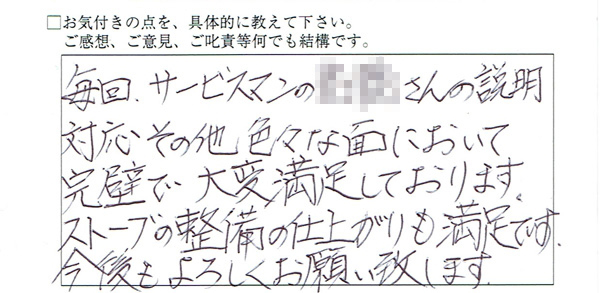 □お気付きの点を、具体的に教えて下さい。
ご感想、ご意見、ご叱責等何でも結構です。
毎回、サービスマンの さんの説明
対応、その他、色々な面において
完璧で、大変満足しております。
ストーブの整備の仕上がりも満足です。
今後もよろしくお願い致します。